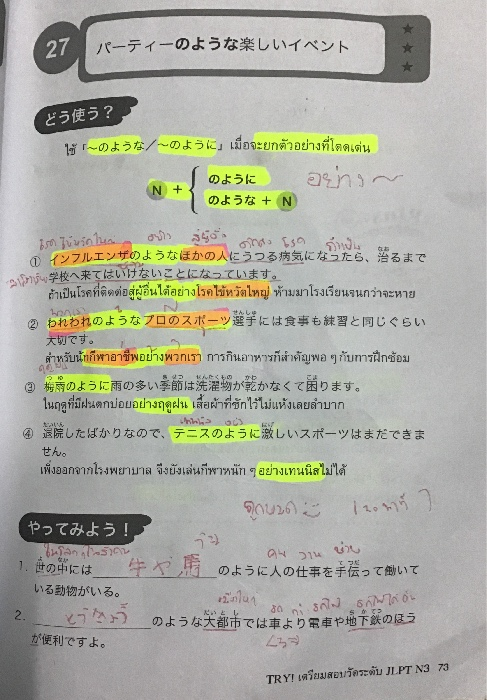 27 パーティーのような楽しいイベント ★★★
どう使う？
ใช้ 「～のような／～のように」 เมื่อจะยกตัวอย่างที่โดดเด่น
N + { のように
のような + N
อย่าง ~
① インフルエンザのようなほかの人にうつる病気になったら、治るまで
学校へ来てはいけないことになっています。
ถ้าเป็นโรคที่ติดต่อสู่ผู้อื่นได้อย่างโรคไข้หวัดใหญ่ ห้ามมาโรงเรียนจนกว่าจะหาย
② われわれのようなプロのスポーツ選手には食事も練習と同じぐらい
大切です。
สำหรับนักกีฬาอาชีพอย่างพวกเรา การกินอาหารก็สำคัญพอ ๆ กับการฝึกซ้อม
③ 梅雨のように雨の多い季節は洗濯物が乾かなくて困ります。
ในฤดูที่มีฝนตกบ่อยอย่างฤดูฝน เสื้อผ้าที่ซักไว้ไม่แห้งเลยลำบาก
④ 退院したばかりなので、テニスのように激しいスポーツはまだできま
せん。
เพิ่งออกจากโรงพยาบาล จึงยังเล่นกีฬาหนัก ๆ อย่างเทนนิสไม่ได้
やってみよう！
1. 世の中には 牛や馬 のように人の仕事を手伝って働いて
いる動物がいる。
2. のような大都市では車より電車や地下鉄のほう
が便利ですよ。
TRY! เตรียมสอบวัดระดับ JLPT N3 73